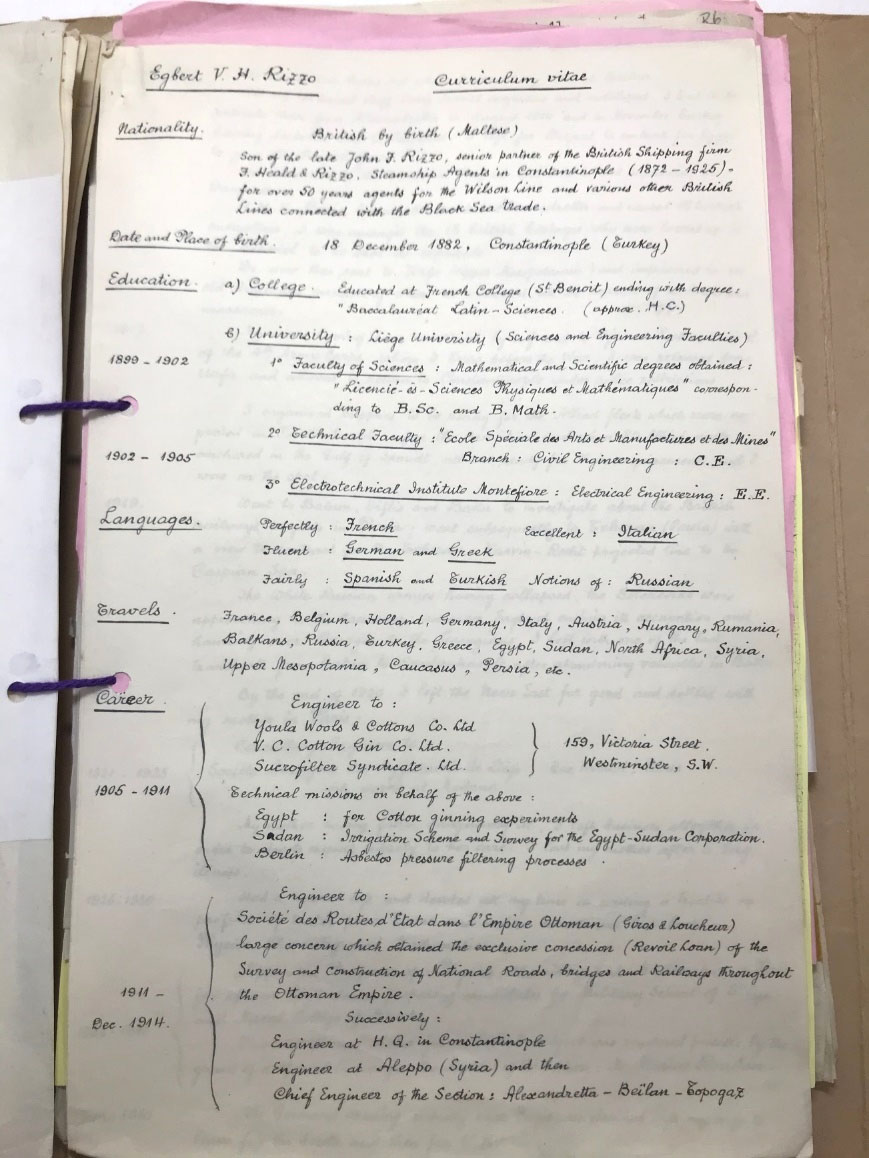 R6
Egbert V. H. Rizzo Curriculum vitae
Nationality. British by birth (Maltese)
Son of the late John F. Rizzo, senior partner of the British Shipping firm
F. Heald & Rizzo, Steamship Agents in Constantinople (1872 - 1925) -
for over 50 years agents for the Wilson Line and various other British
Lines connected with the Black Sea trade.
Date and Place of birth. 18 December 1882, Constantinople (Turkey)
Education. a) College. Educated at French College (St Benoit) ending with degree:
"Baccalauréat Latin-Sciences. (approx. H.C.)
b) University : Liège University (Sciences and Engineering Faculties)
1899 - 1902 1° Faculty of Sciences : Mathematical and Scientific degrees obtained :
"Licencié-ès-Sciences Physiques et Mathématiques" correspon-
ding to B.Sc. and B. Math.
2° Technical Faculty : "Ecole Spéciale des Arts et Manufactures et des Mines"
1902 - 1905 Branch : Civil Engineering : C.E.
3° Electrotechnical Institute Montefiore : Electrical Engineering : E.E.
Languages. Perfectly : French Excellent : Italian
Fluent : German and Greek
Fairly : Spanish and Turkish Notions of : Russian
Travels. France, Belgium, Holland, Germany, Italy, Austria, Hungary, Rumania,
Balkans, Russia, Turkey, Greece, Egypt, Sudan, North Africa, Syria,
Upper Mesopotamia, Caucasus, Persia, etc.
Career. Engineer to :
Youla Wools & Cottons Co. Ltd
V. C. Cotton Gin Co. Ltd. 159, Victoria Street,
Sucrofilter Syndicate. Ltd. Westminster, S.W.
1905 - 1911 Technical missions on behalf of the above :
Egypt : for Cotton ginning experiments
Sudan : Irrigation Scheme and Survey for the Egypt-Sudan Corporation.
Berlin : Asbestos pressure filtering processes.
Engineer to :
Société des Routes d'Etat dans l'Empire Ottoman (Giros & Loucheur)
large concern which obtained the exclusive concession (Revoil Loan) of the
Survey and Construction of National Roads, bridges and Railways throughout
1911 - the Ottoman Empire.
Dec. 1914. Successively :
Engineer at H.Q. in Constantinople
Engineer at Aleppo (Syria) and then
Chief Engineer of the Section : Alexandretta - Beïlan - Topogaz